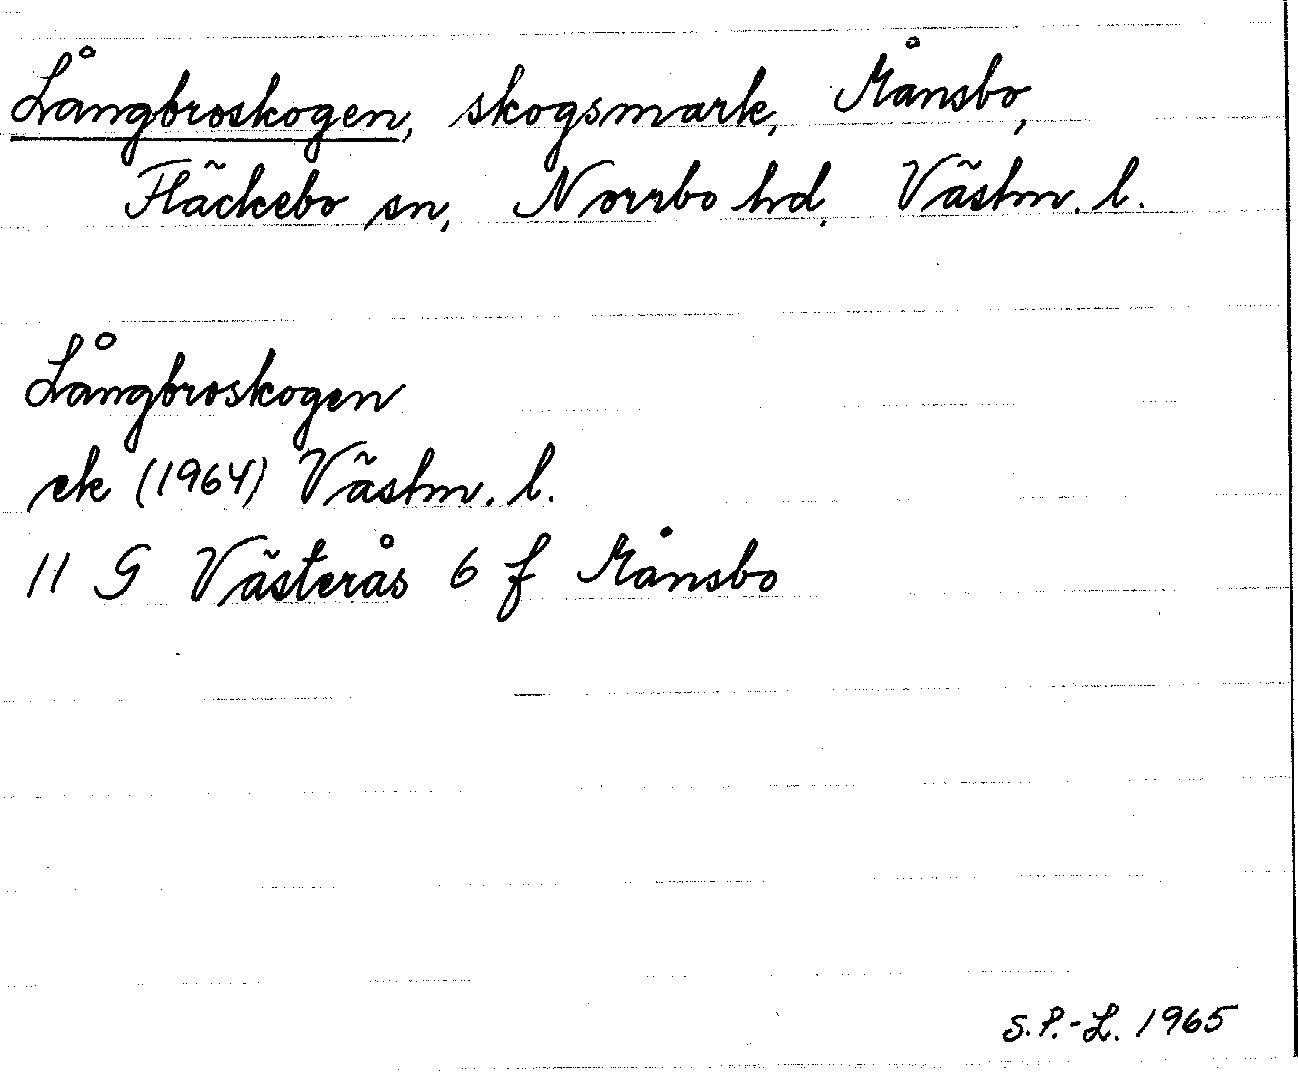 Långbroskogen, skogsmark, Månsbo,
Fläckebo sn, Norrbo hd, Västm. l.
Långbroskogen
ek (1964) Västm. l.
11 G Västerås 6 f Månsbo
S.P.-L. 1965